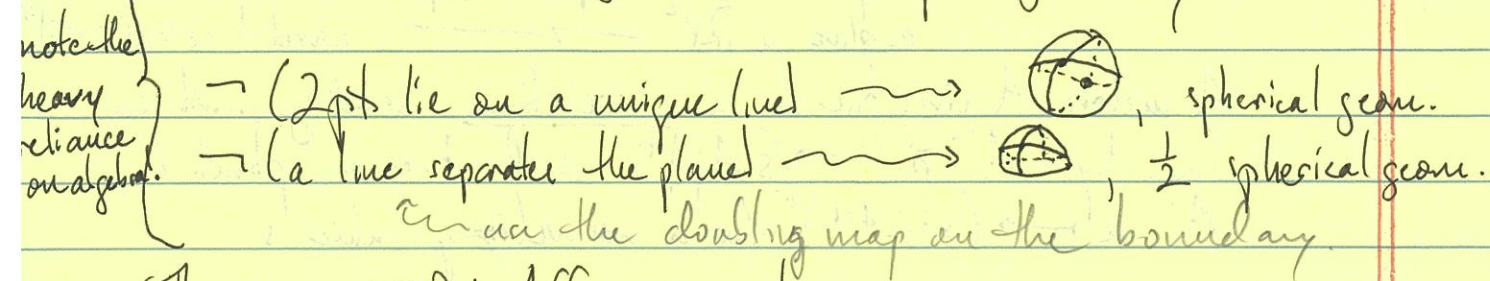 note the
heavy
reliance
on algebra.
¬ (2 pts lie on a unique line) ⇝ , spherical geom.
¬ (a line separates the plane) ⇝ , 1/2 spherical geom.
via the doubling map on the boundary.